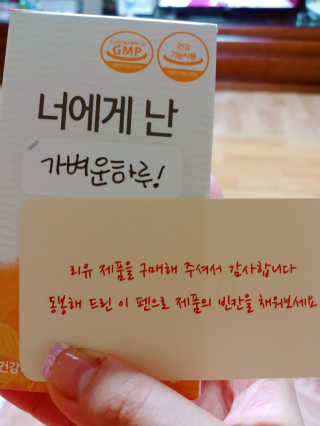 GMP
건강
기능식품
너에게 난
가벼운하루!
리유 제품을 구매해 주셔서 감사합니다
동봉해 드린 이 펜으로 제품의 빈칸을 채워보세요
건강